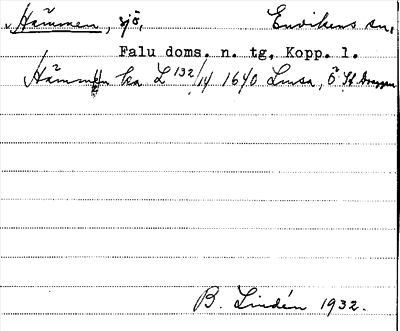 Hämmen, sjö, Envikens sn,
Falu doms. n. tg, Kopp. l.
Hämmen ka L 132/14 1640 Lmsa, Ö St
B. Lindén 1932.